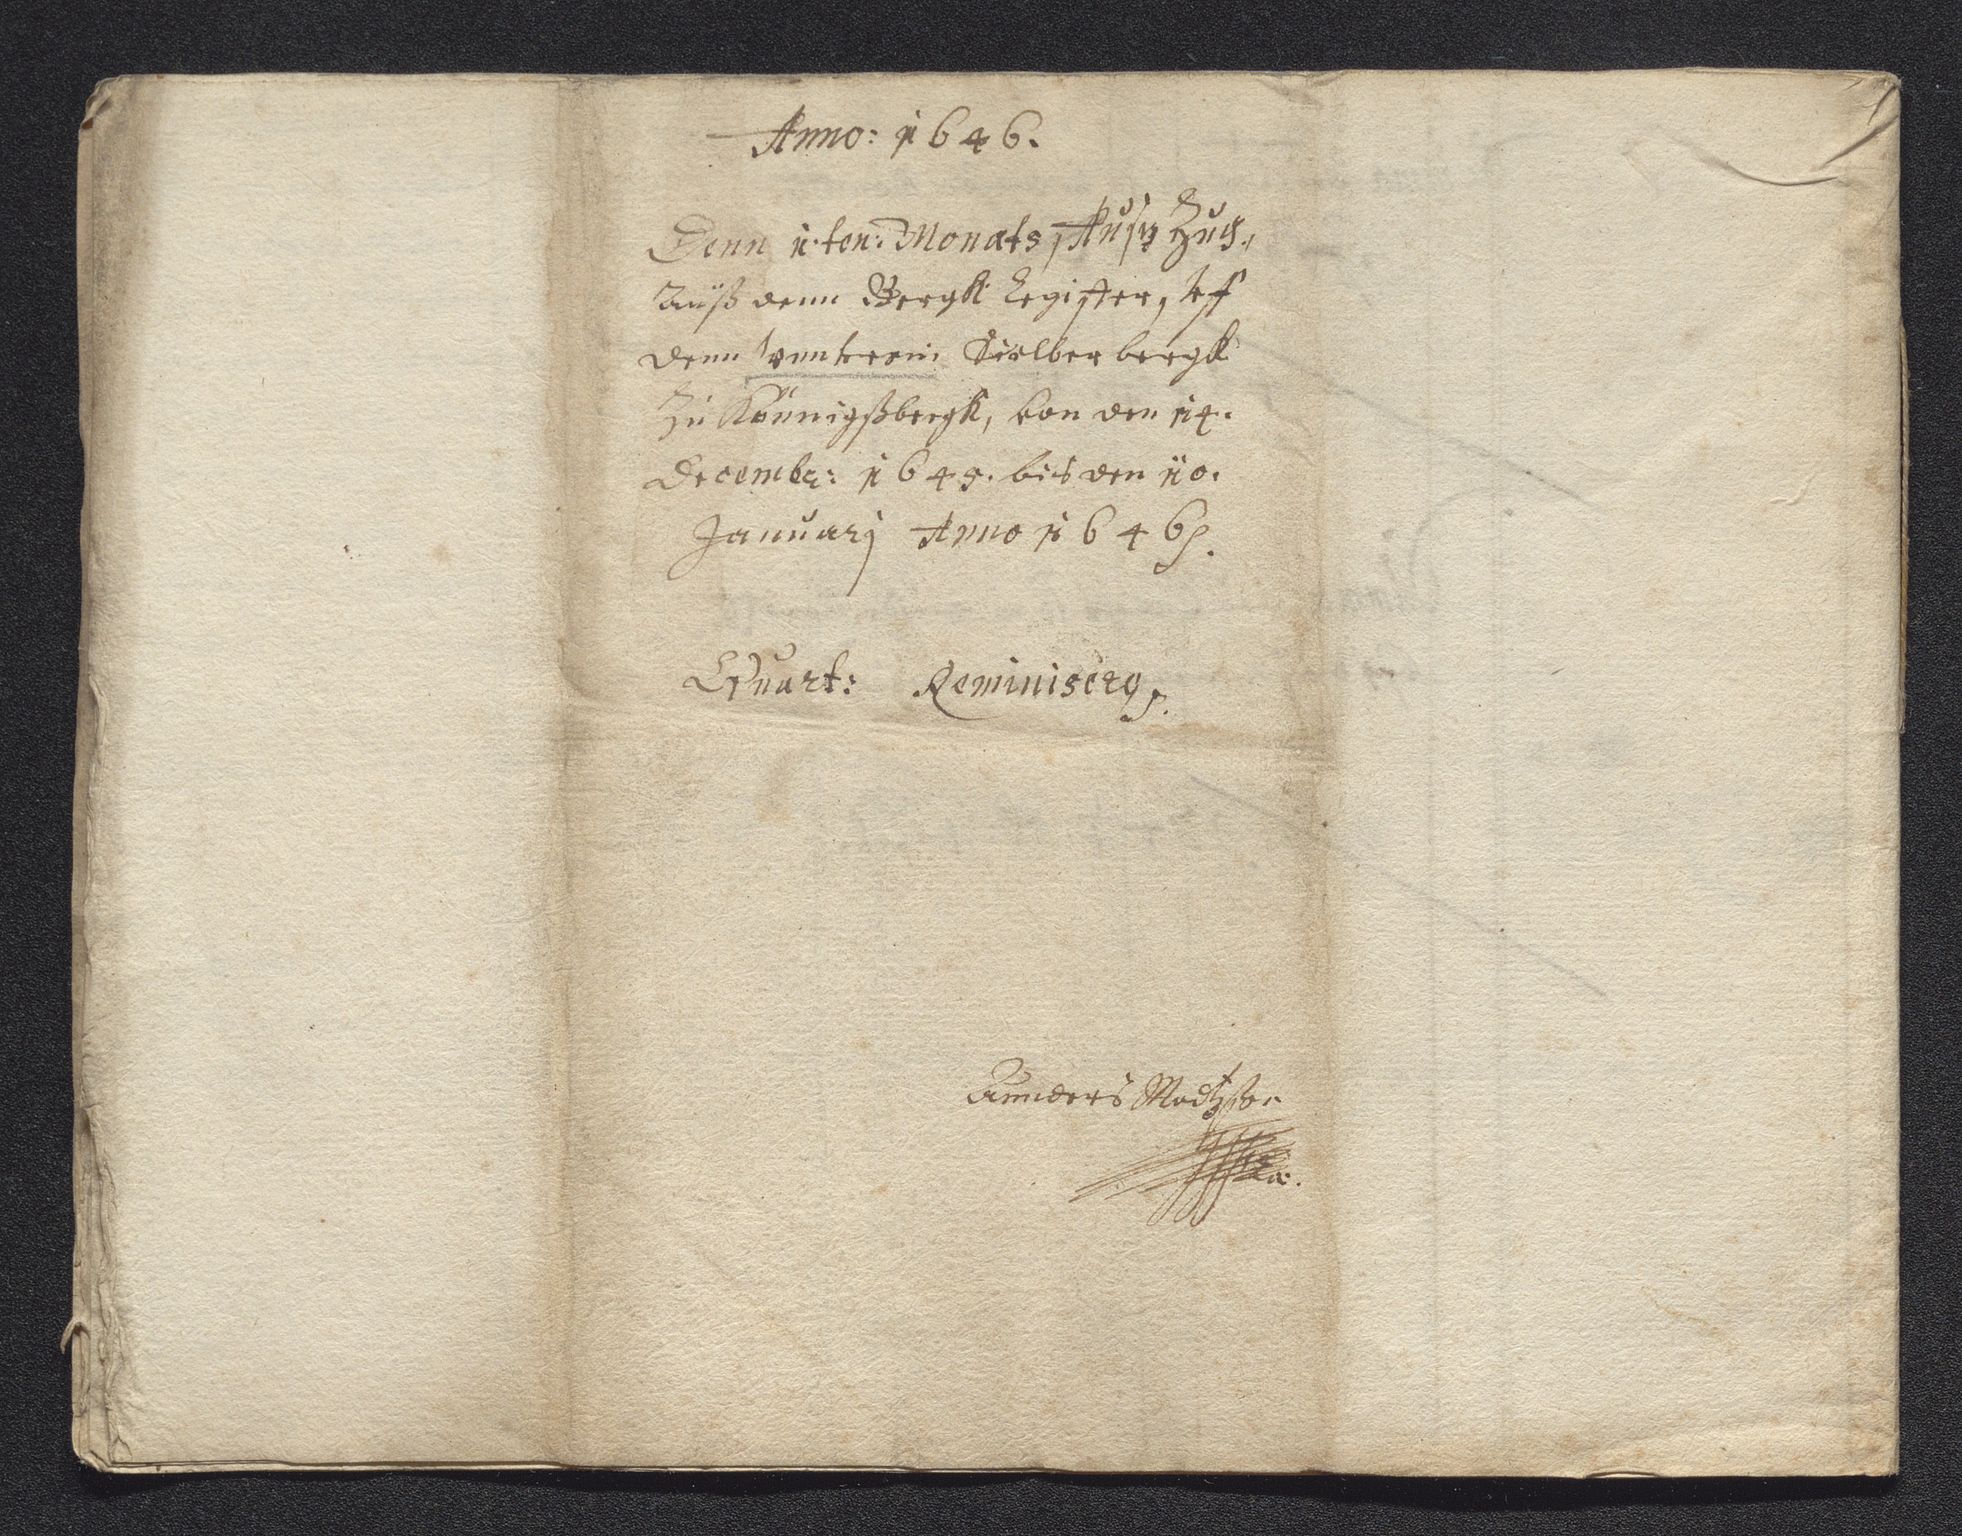 Anno: 1646.
Denn 1:ten: Monats Auszzug,
Auß denn Bergk Register, Uff
denn untern Sielber bergk
Zu Königßbergk, von den 14.
Decembr: 1645. bis den 10.
Januarj Anno 1646.
Quart: Reminiscere.
Annders